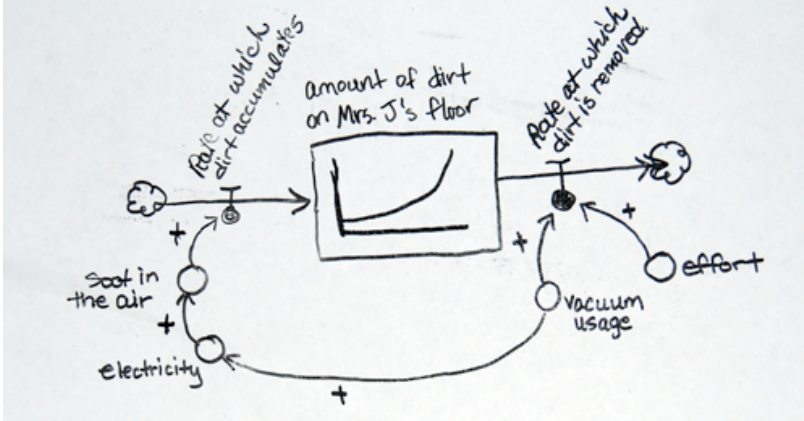 Rate at which
dirt accumulates
amount of dirt
on Mrs. J's floor
Rate at which
dirt is removed
+
soot in
the air
+
electricity
+
+
vacuum
usage
+
effort